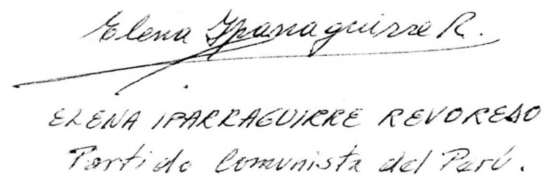 Elena Iparraguirre R.
ELENA IPARRAGUIRRE REVOREDO
Partido Comunista del Perú.